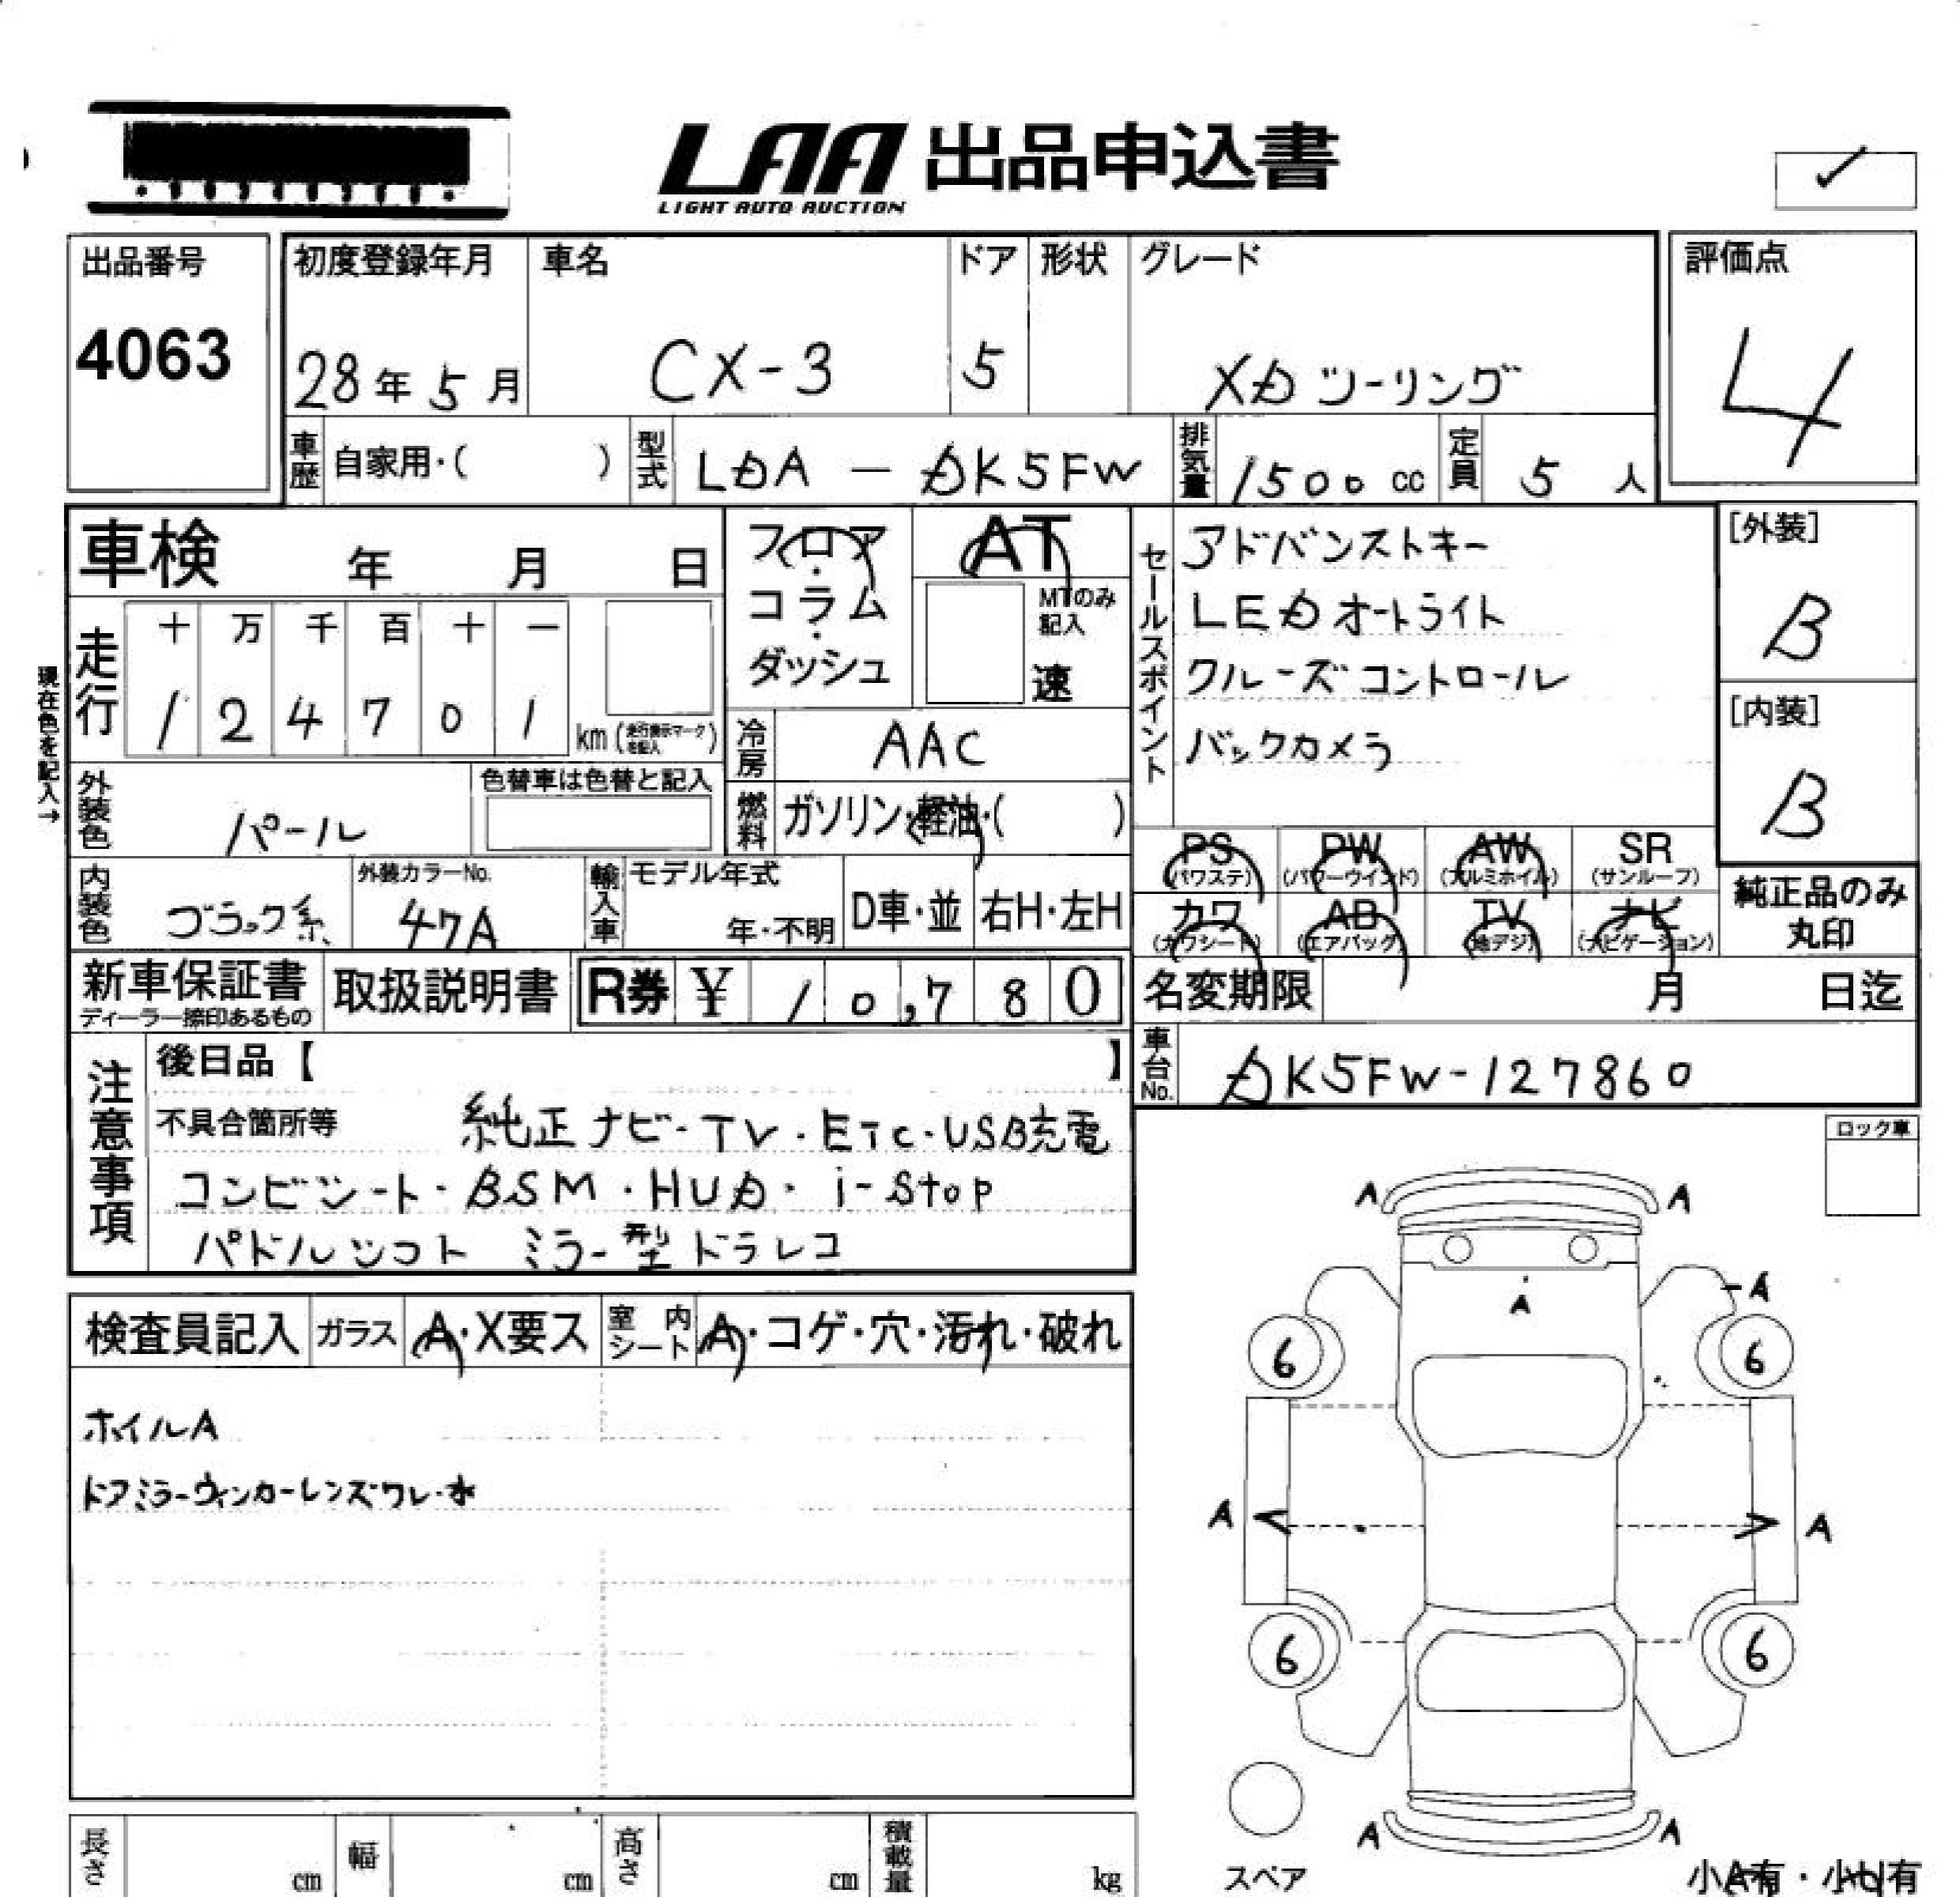 LAA 出品申込書
LIGHT AUTO AUCTION
出品番号
4063
初度登録年月
28年5月
車名
CX-3
ドア
5
形状
グレード
XDツーリング
評価点
4
車歴 自家用・( )
型式 LDA-DK5FW
排気量 1500 cc
定員 5 人
車検 年 月 日
現在色を記入→
走行
十 万 千 百 十 一
1 2 4 7 0 1 km (走行表示マークを記入)
フロア・コラム・ダッシュ
AT
MTのみ記入
速
冷房 AAC
燃料 ガソリン・軽油・( )
セールスポイント
アドバンストキー
LEDオートライト
クルーズコントロール
バックカメラ
[外装]
B
[内装]
B
外装色 パール
色替車は色替と記入
内装色 ブラック系
外装カラーNo.
47A
輸入車 モデル年式
年・不明
D車・並
右H・左H
PS (パワステ)
PW (パワーウインド)
AW (アルミホイル)
SR (サンルーフ)
カワ (カワシート)
AB (エアバッグ)
TV (地デジ)
ナビ (ナビゲーション)
純正品のみ丸印
新車保証書
ディーラー捺印あるもの
取扱説明書
R券 ¥ 10,780
名変期限 月 日迄
車台No. DK5FW-127860
注意事項
後日品【 】
不具合箇所等 純正ナビ・TV・ETC・USB充電
コンビシート・BSM・HUD・i-stop
パドルシフト ミラー型ドラレコ
ロック車
検査員記入 ガラス A・X要ス 室内シート A・コゲ・穴・汚れ・破れ
ホイルA
ドアミラーウィンカーレンズワレ・水
A A
A
A
6 6
A A
6 6
A A
スペア
小A有・小U有
長さ cm
幅 cm
高さ cm
積載量 kg